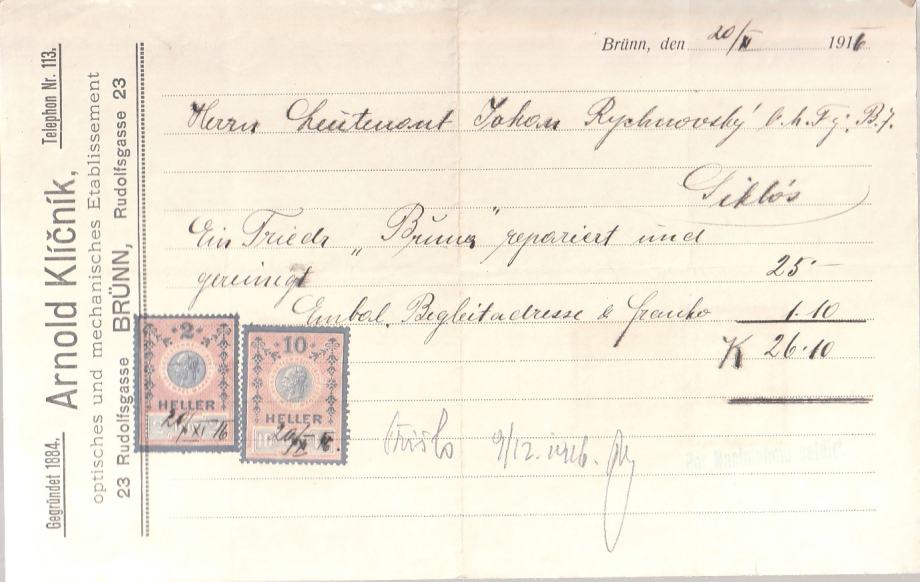 Gegründet 1884. Telephon Nr. 113.
Arnold Klíčník,
optisches und mechanisches Etablissement
23 Rudolfsgasse BRÜNN, Rudolfsgasse 23
Brünn, den 20/XI 1916
Herrn Leutenant Johan Rychnovský
Siklós
Ein Triedr „Brünn" repariert und
gereinigt 25·–
Embal. Begleitadresse & franko 1·10
K 26·10
2
HELLER
20/XI 16
10
HELLER
20/XI 16.
9/12. 1916.